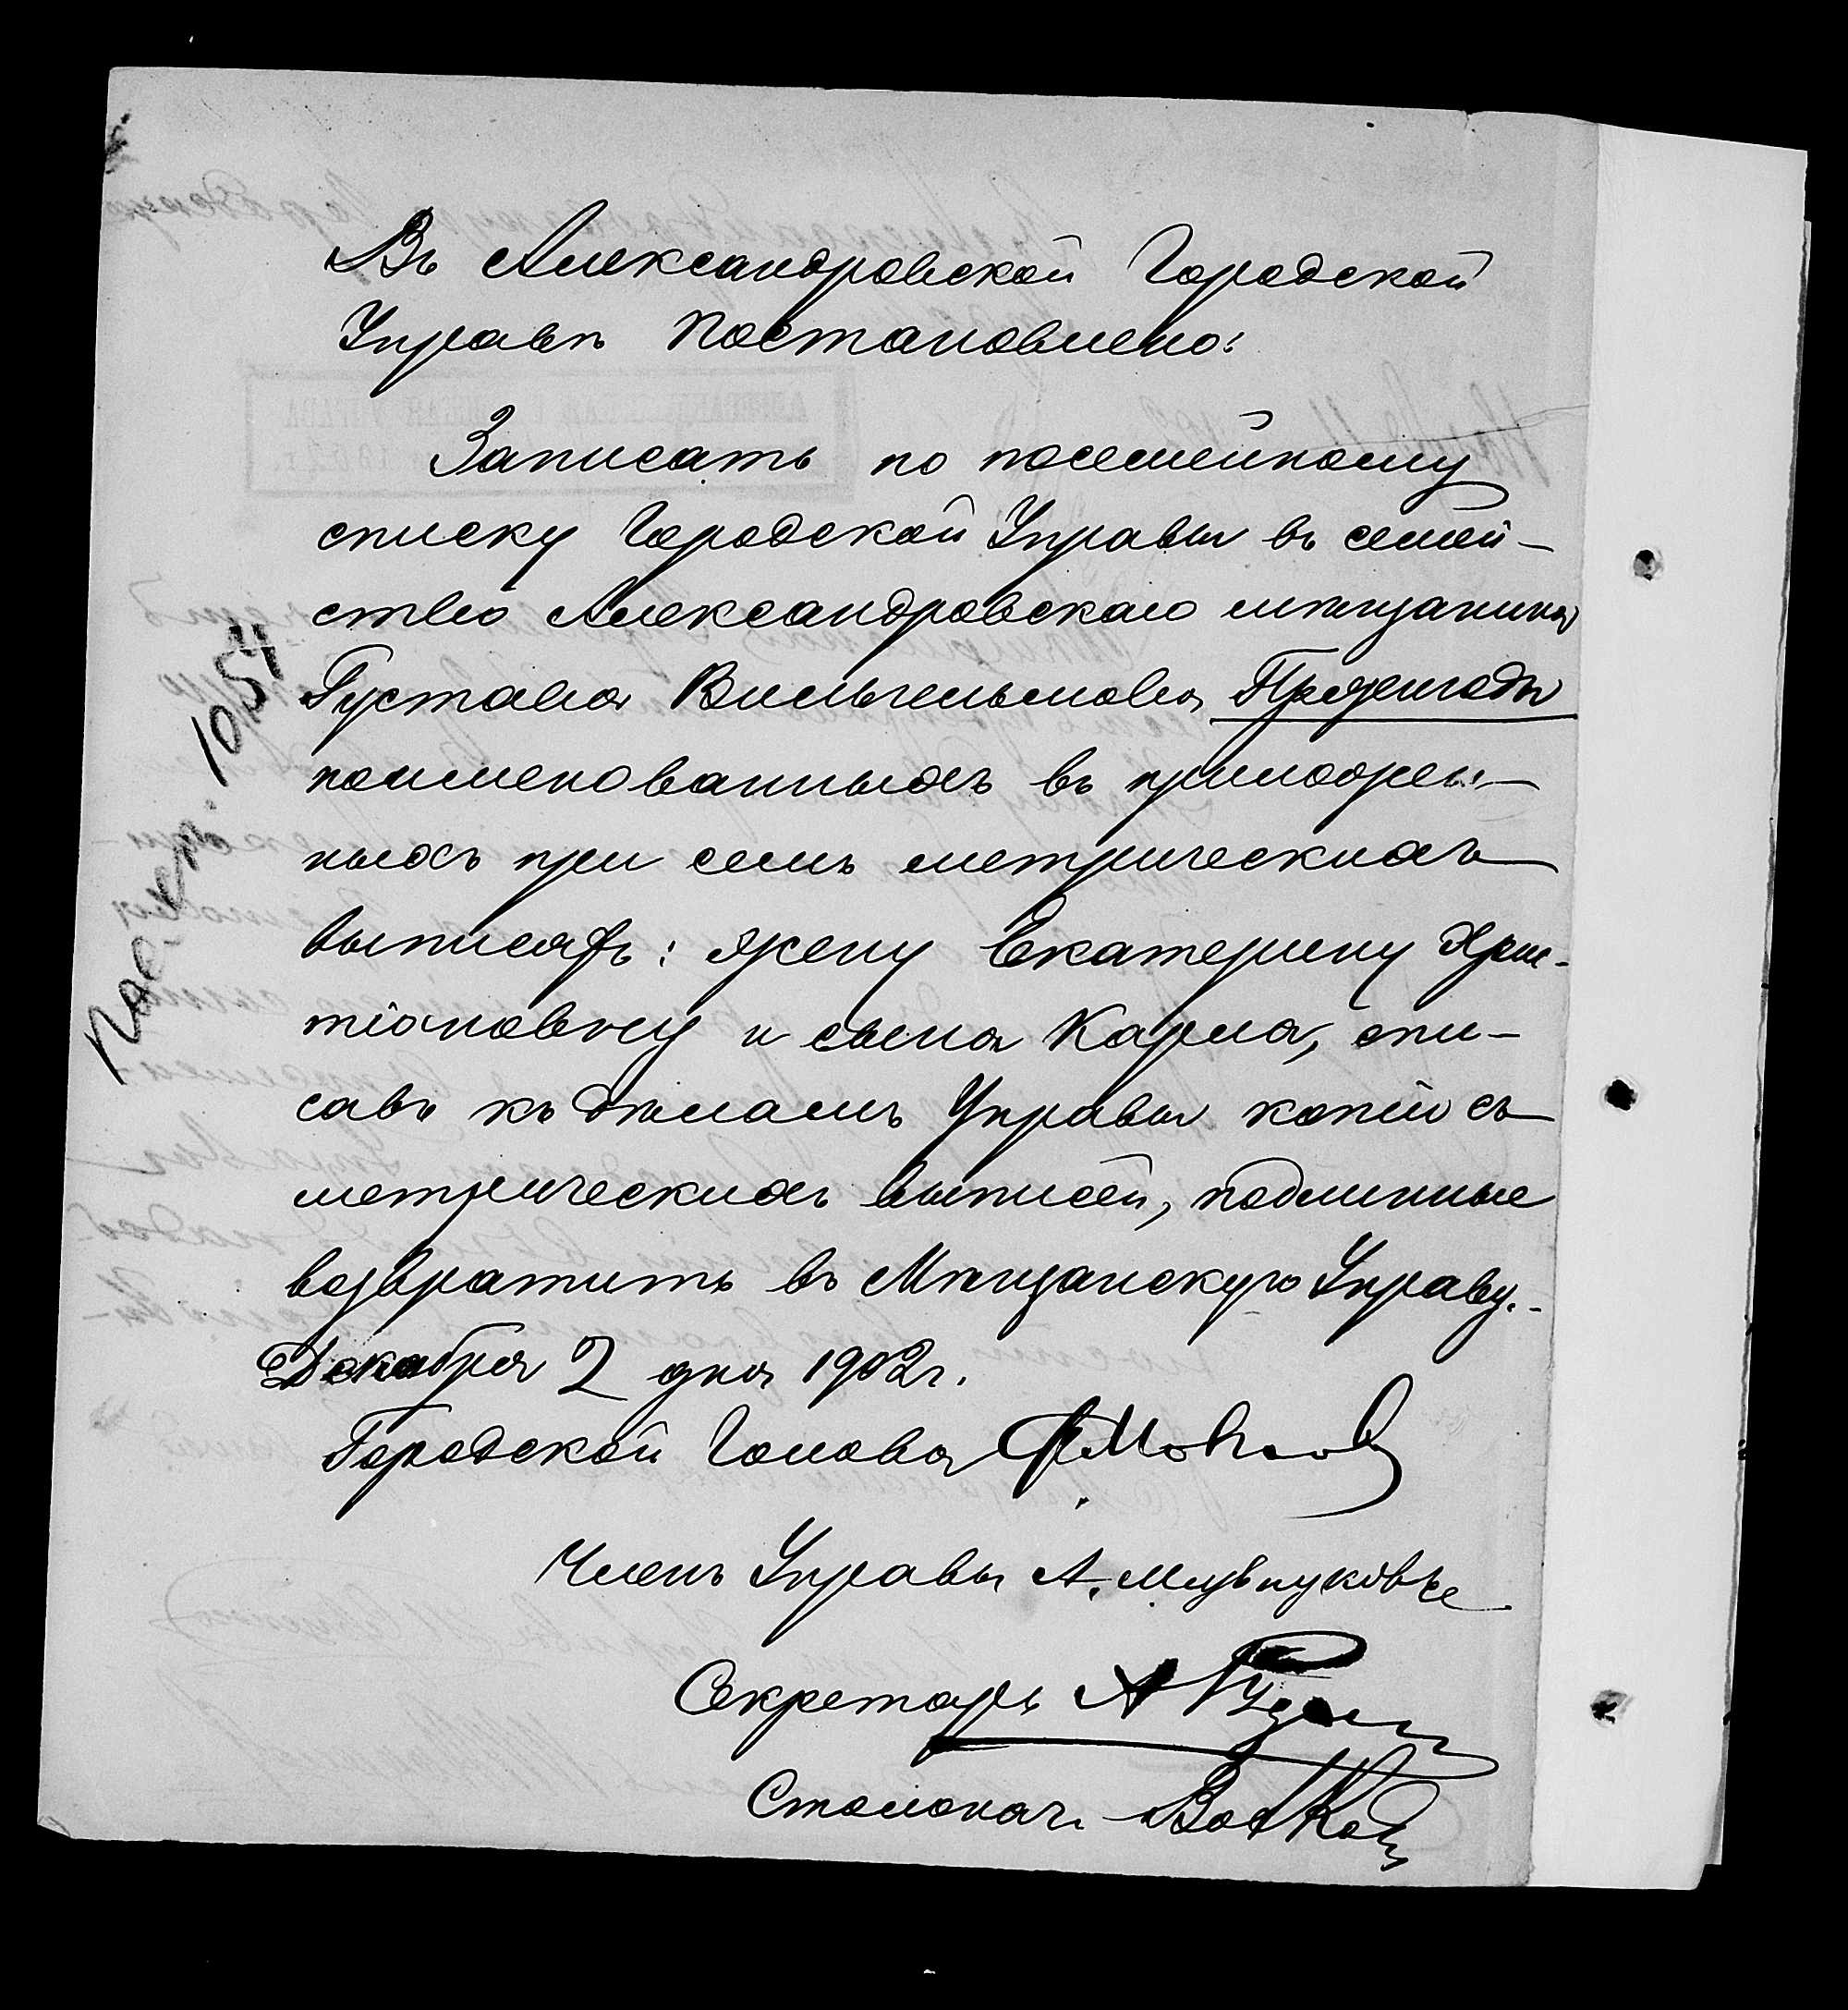 Въ Александровской Городской
Управѣ постановлено:
Записать по посемейному
списку Городской Управы въ семей-
ство Александровскаго мѣщанина
Густава Вильгельмова
поименованныхъ въ приложен-
ныхъ при семъ метрическихъ
выписяхъ: жену Екатерину Хрис-
тіановну и сына Карла, спи-
савъ къ дѣламъ Управы копіи съ
метрическихъ выписей, подлинные
возвратить въ Мѣщанскую Управу.-
Декабря 2 дня 1902 г.
Городской Голова
Членъ Управы А.
Секретарь А
Столонач.
1054